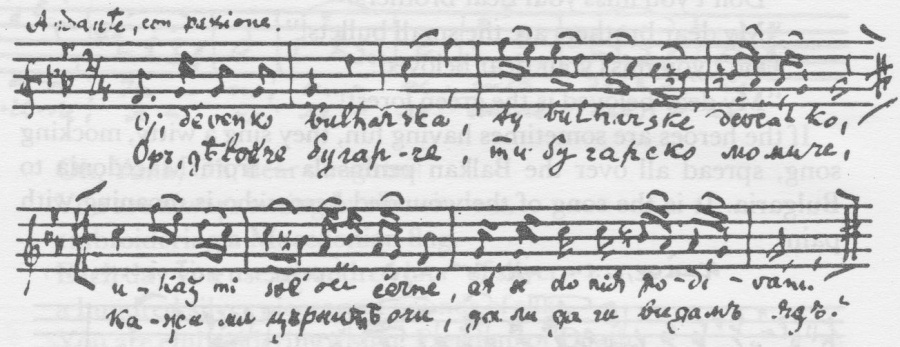 Andante, con passione.
Oj děvenko bulharská, ty bulharské děvčátko,
бугар-че, ти бугарско момиче,
u-kaž mi své oči černé, ať se do nich po-dí-vám.
ка-жи ми църнитѣ очи, да ли да ги видамъ